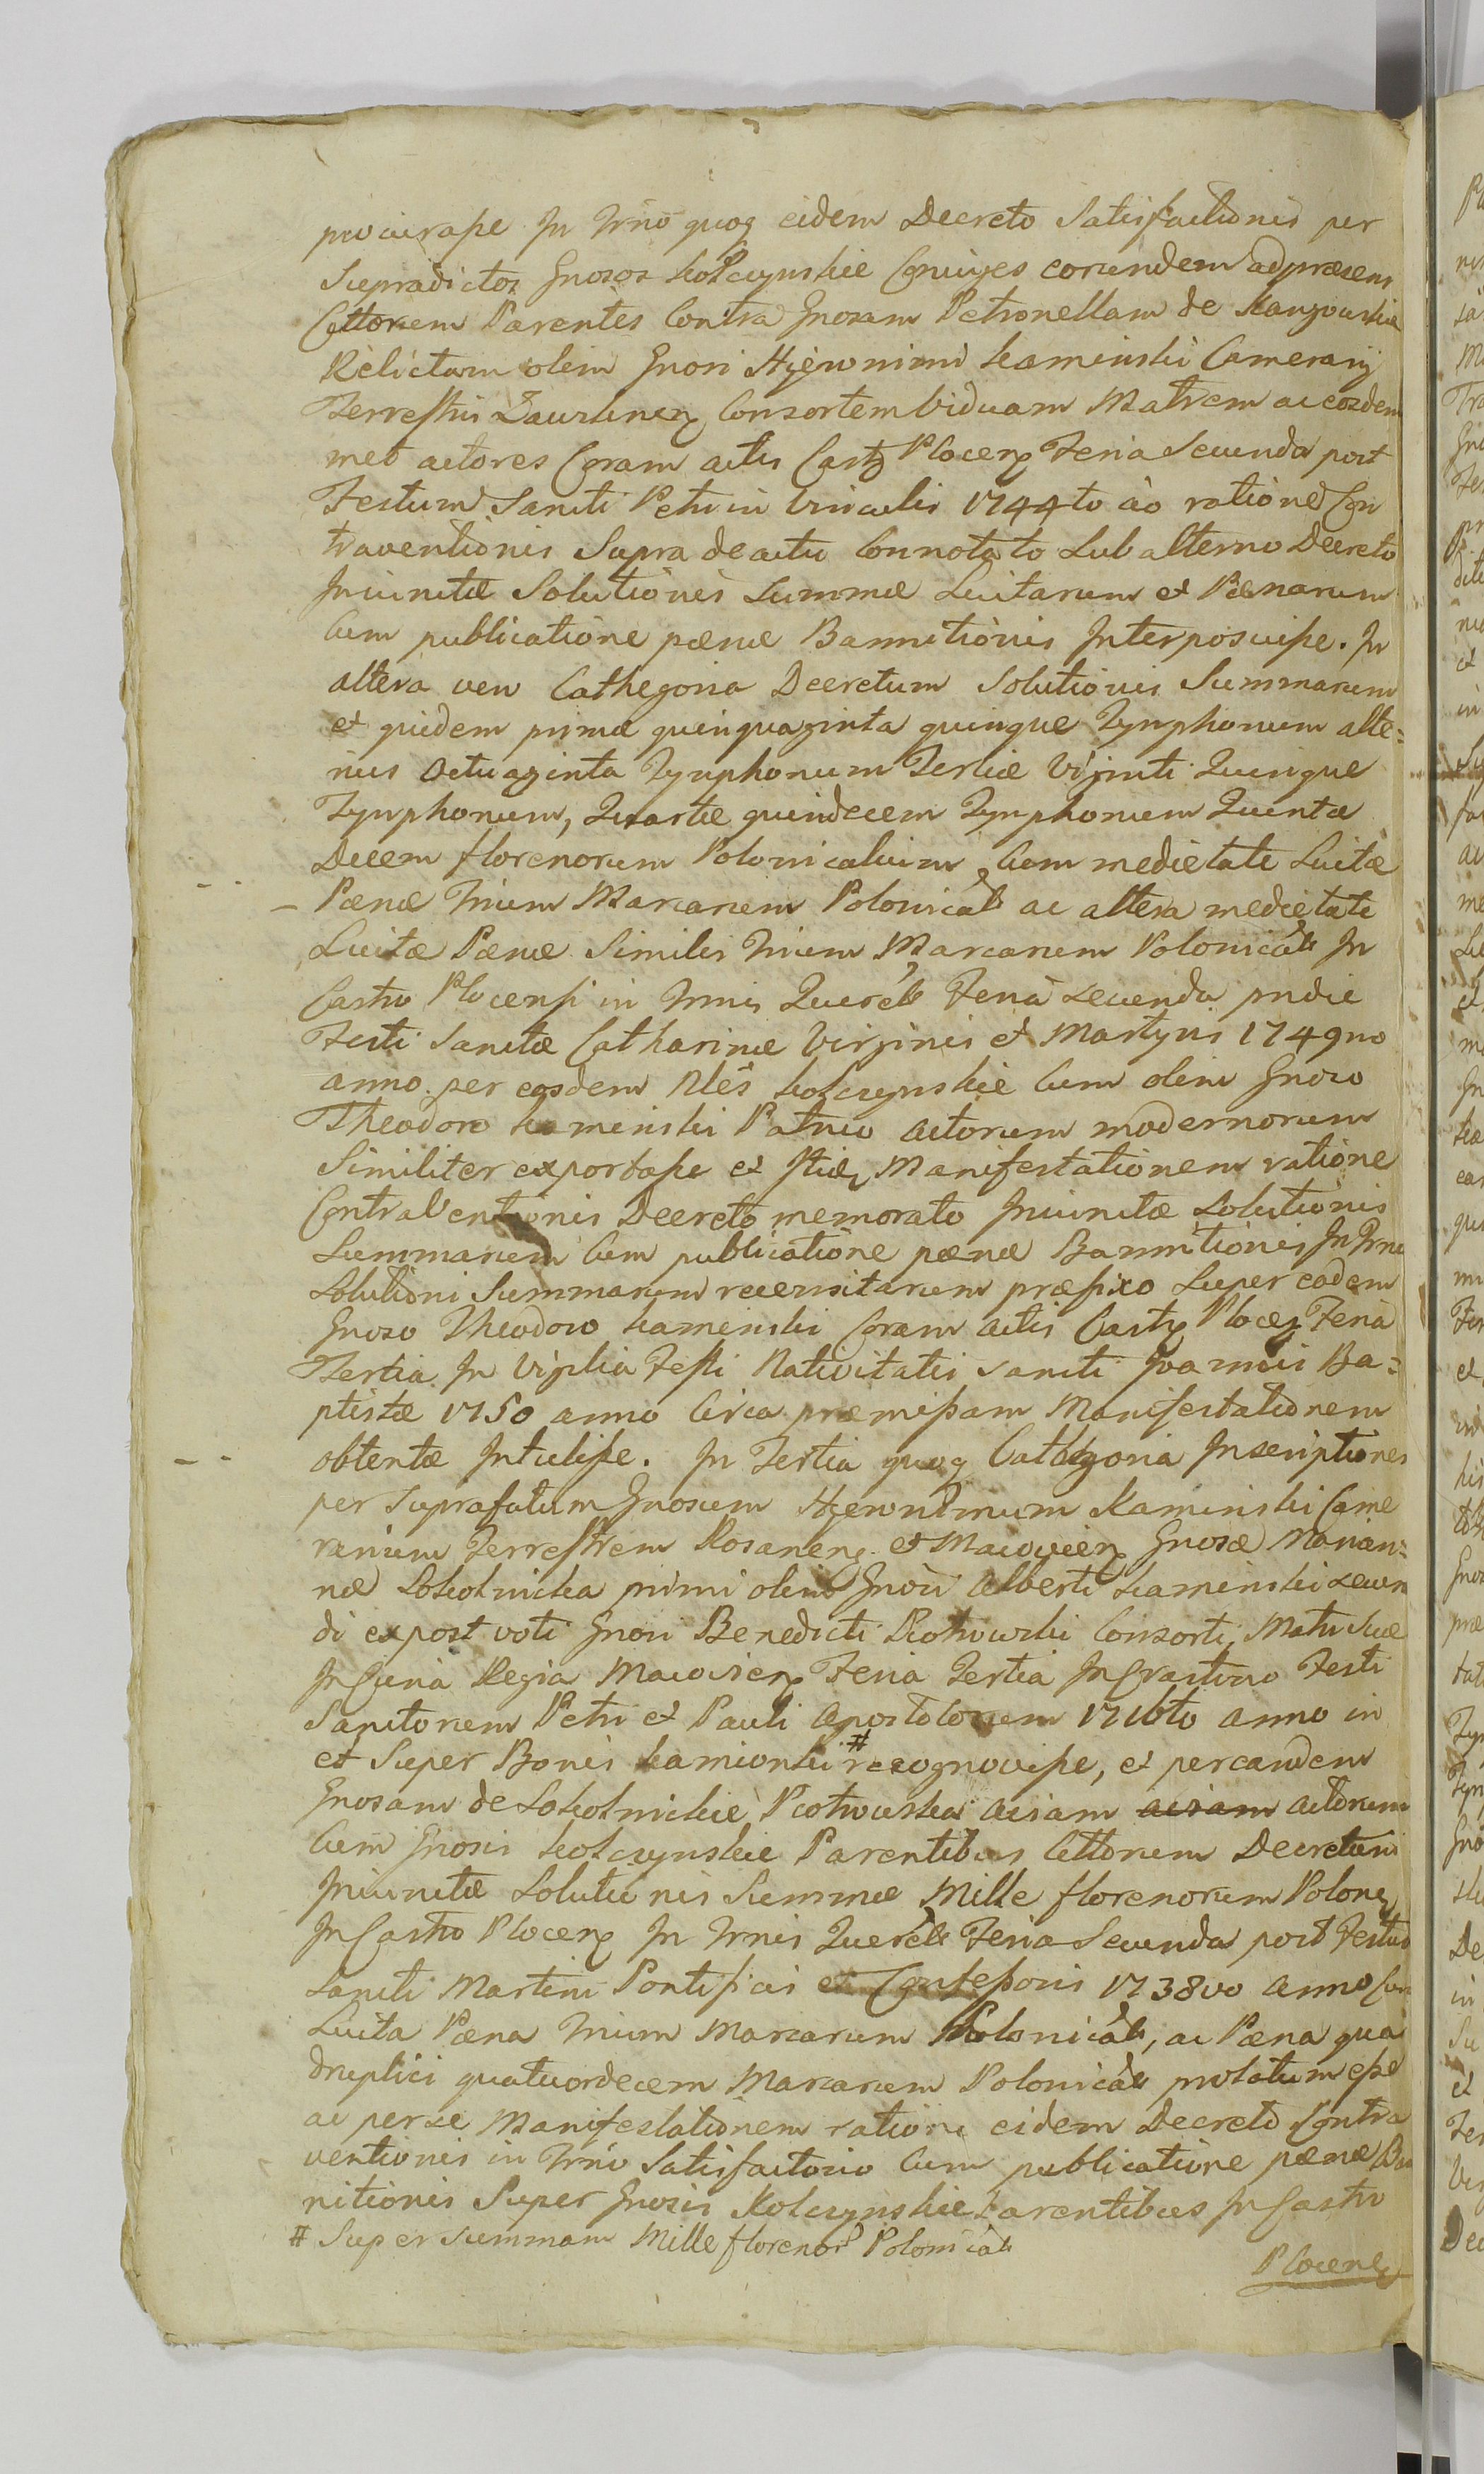 procurasse In Trno quoq eidem Decreto Satisfactionis per
Supradictos Gnosos Kolczynskie Coniuges eorundem ad præsens
Cittorum Parentes Contra Gnosam Petronellam de
Relictam olim Gnosi Hÿeronimi Kaminski Camerarij
Terrestris Zawskrnen Consortem Viduam Matrem ac eosdem
met actores Coram actis Castr Plocen Feria Secunda post
Festum Sancti Petri in Vinculis 1744to ao ratione Con
traventionis Supra de actu Connotato Sub alterno Decreto
Iniunctæ Solutionis Summæ Luitarum et Pænarum
Cum publicatione pænæ Bannitionis Interposuisse. In
altera vero Cathegoria Decretum Solutionis Summarum
et quidem primæ quinquaginta quinque Tynphonum alte=
rius Octuaginta Tynphonum Tertiæ Viginti Quinque
Tynphonum, Quartæ quindecem Tynphonum Quintæ
Decem florenorum Polonicalium, Cum medietate Luitæ
Pænæ Trium Marcarum Polonical ac altera medietate
Luitæ Pænæ Similis Trium Marcarum Polonical In
Castro Plocensi in Trnis Querel Feria Secunda pridie
Festi Sanctæ Catharinæ Virginis et Martyris 1749no
anno per eosdem Kolczynskie Cum olim Gnoso
Theodoro Kaminski Patruo Actorum modernorum
Similiter exportasse et Manifestationem ratione
ContraVentionis Decreto memorato Iniunctæ Solutionis
Summarum Cum publicatione pænæ Bannitionis In Trno
Solutioni Summarum recensitarum præfixo Super eodem
Gnoso Theodoro Kaminski Coram Actis Castr Plocen Feria
Tertia In Vigilia Festi Nativitatis Sancti Joannis Ba=
ptistæ 1750 anno Circa præmissam Manifestationem
obtentæ Intulisse. In Tertia quoq Cathegoria Inscriptiones
per Suprafatum Gnosum Hÿeronimum Kaminski Came
rarium Terrestrem Rosanen et Macovien Gnosæ Marian=
næ Sokolnicka primi olim Gnosi Alberti Kaminski Secun
di expost voti Gnosi Benedicti Piotrowski Consorti Matri Suæ
In Curia Regia Macovien Feria Tertia In Crastino Festi
Sanctorum Petri et Pauli Apostolorum 1716to anno in
et Super Bonis Kamionki # recognovisse, et per eandem
Gnosam de Sokolnickie Piotrowska aviam aviam actorum
Cum Gnosis Kolczynskie Parentibus Cittorum Decretum
Iniunctæ Solutionis Summæ Mille florenorum Polon
In Castro Plocen In Trnis Querel Feria Secunda post Festum
Sancti Martini Pontificis et Confessoris 1738vo anno Cum
Luita Pæna Trium Marcarum Polonical, ac Pæna qua
druplici quatuordecem Marcarum Polonical prolatum esse
ac per se Manifestationem ratione eidem Decreto Contra
ventionis in Trno Satisfactorio Cum publicatione pænæ Ban
nitionis Super Gnosis Kolczynskie Parentibus In Castro
# Super Summam Mille florenor Polonical
Plocen